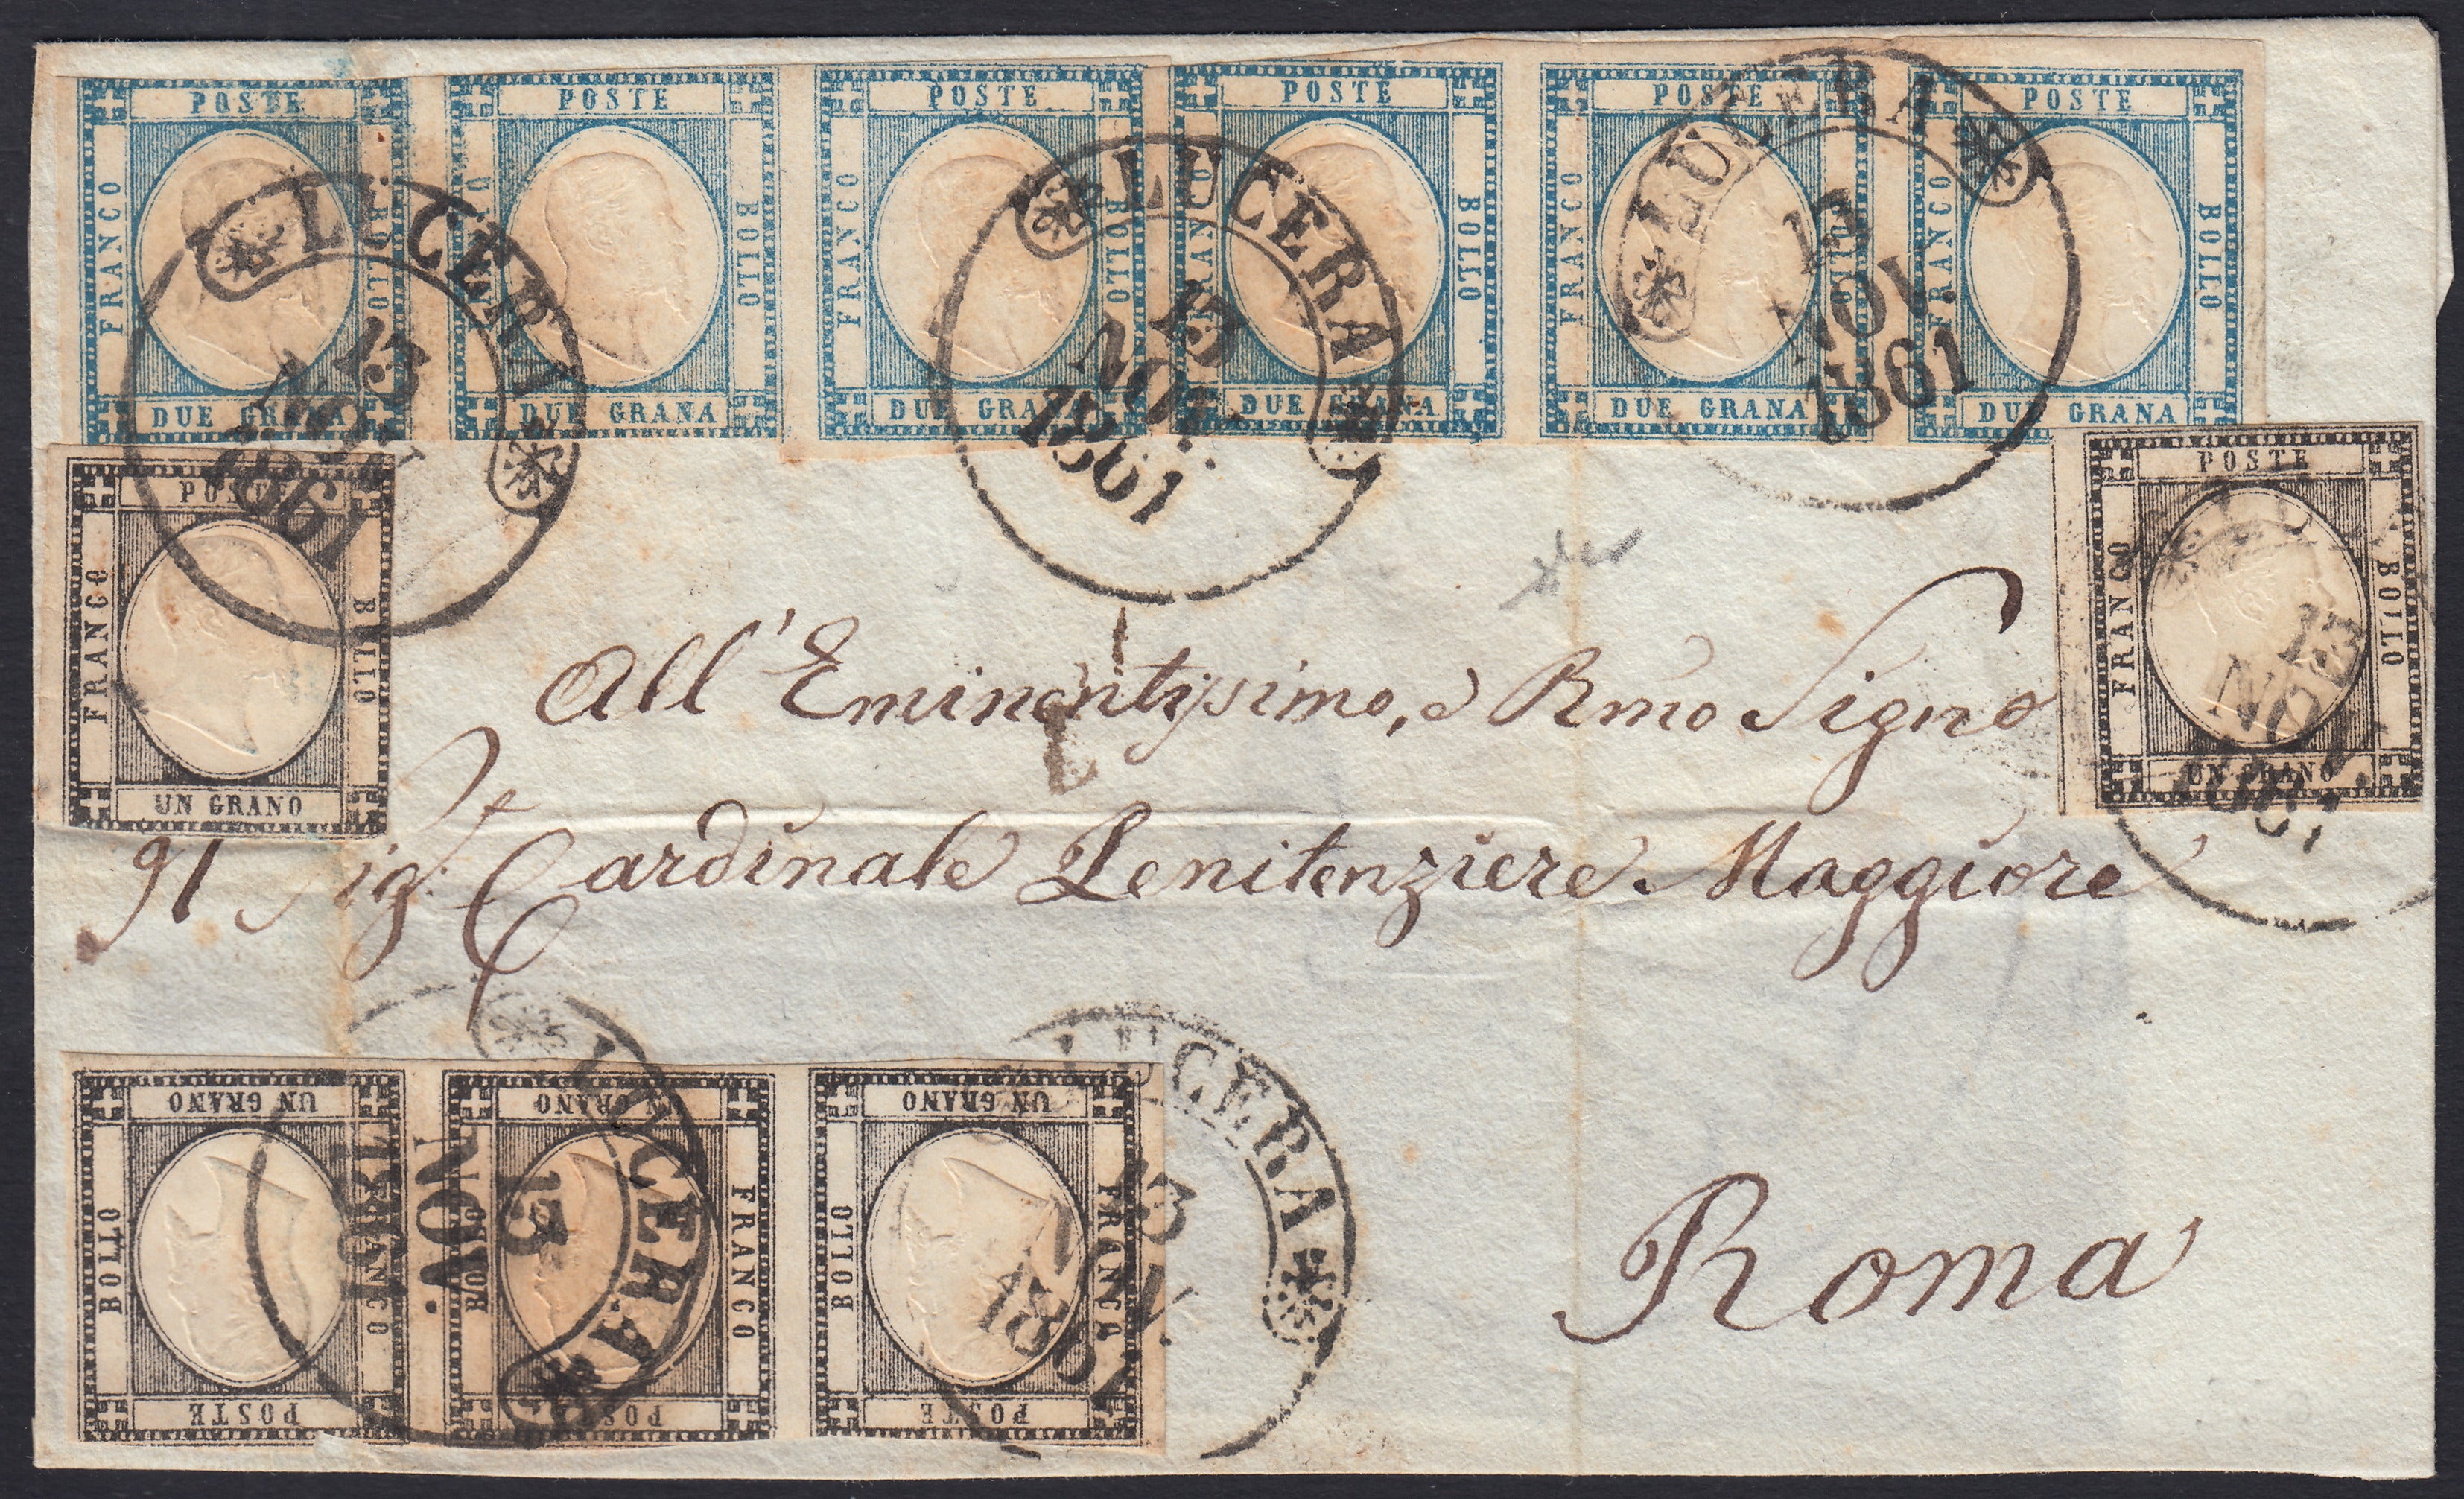 POSTE POSTE POSTE POSTE POSTE POSTE
FRANCO BOLLO FRANCO BOLLO FRANCO BOLLO FRANCO BOLLO FRANCO BOLLO FRANCO BOLLO
DUE GRANA DUE GRANA DUE GRANA DUE GRANA DUE GRANA DUE GRANA
LUCERA 13 NOV. 1861
LUCERA 13 NOV. 1861
LUCERA 13 NOV. 1861
POSTE
FRANCO BOLLO
UN GRANO
POSTE
FRANCO BOLLO
UN GRANO
13 NOV. 1861
All' Eminentissimo, e Rmo Signo
Il Sig. Cardinale Penitenziere Maggiore
Roma
UN GRANO UN GRANO UN GRANO
BOLLO FRANCO BOLLO FRANCO BOLLO FRANCO
POSTE POSTE POSTE
LUCERA 13 NOV. 1861
LUCERA 13 NOV. 1861